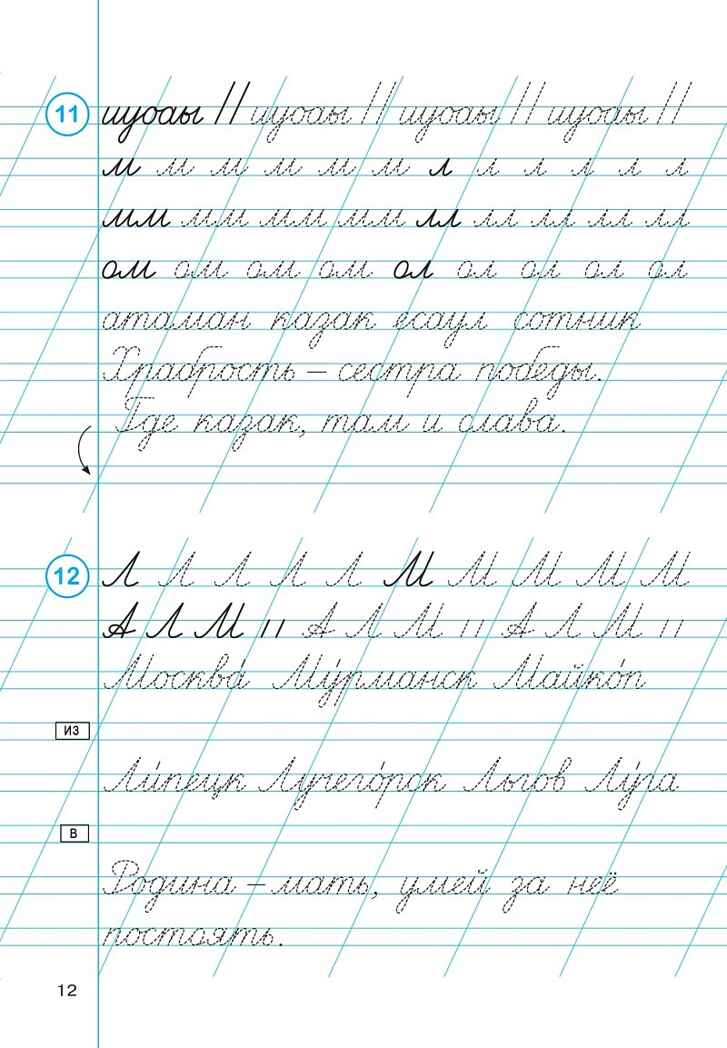 11 шуоаы // шуоаы // шуоаы // шуоаы //
м м м м м м л л л л л л
мм мм мм мм лл лл лл лл лл
ом ом ом ом ол ол ол ол ол
атаман казак есаул сотник
Храбрость – сестра победы.
Где казак, там и слава.
12 Л Л Л Л Л М М М М М
А Л М ıı А Л М ıı А Л М ıı
Москва́ Му́рманск Майко́п
из
Ли́пецк Лучего́рск Льгов Лу́га
в
Родина – мать, умей за неё
постоять.
12